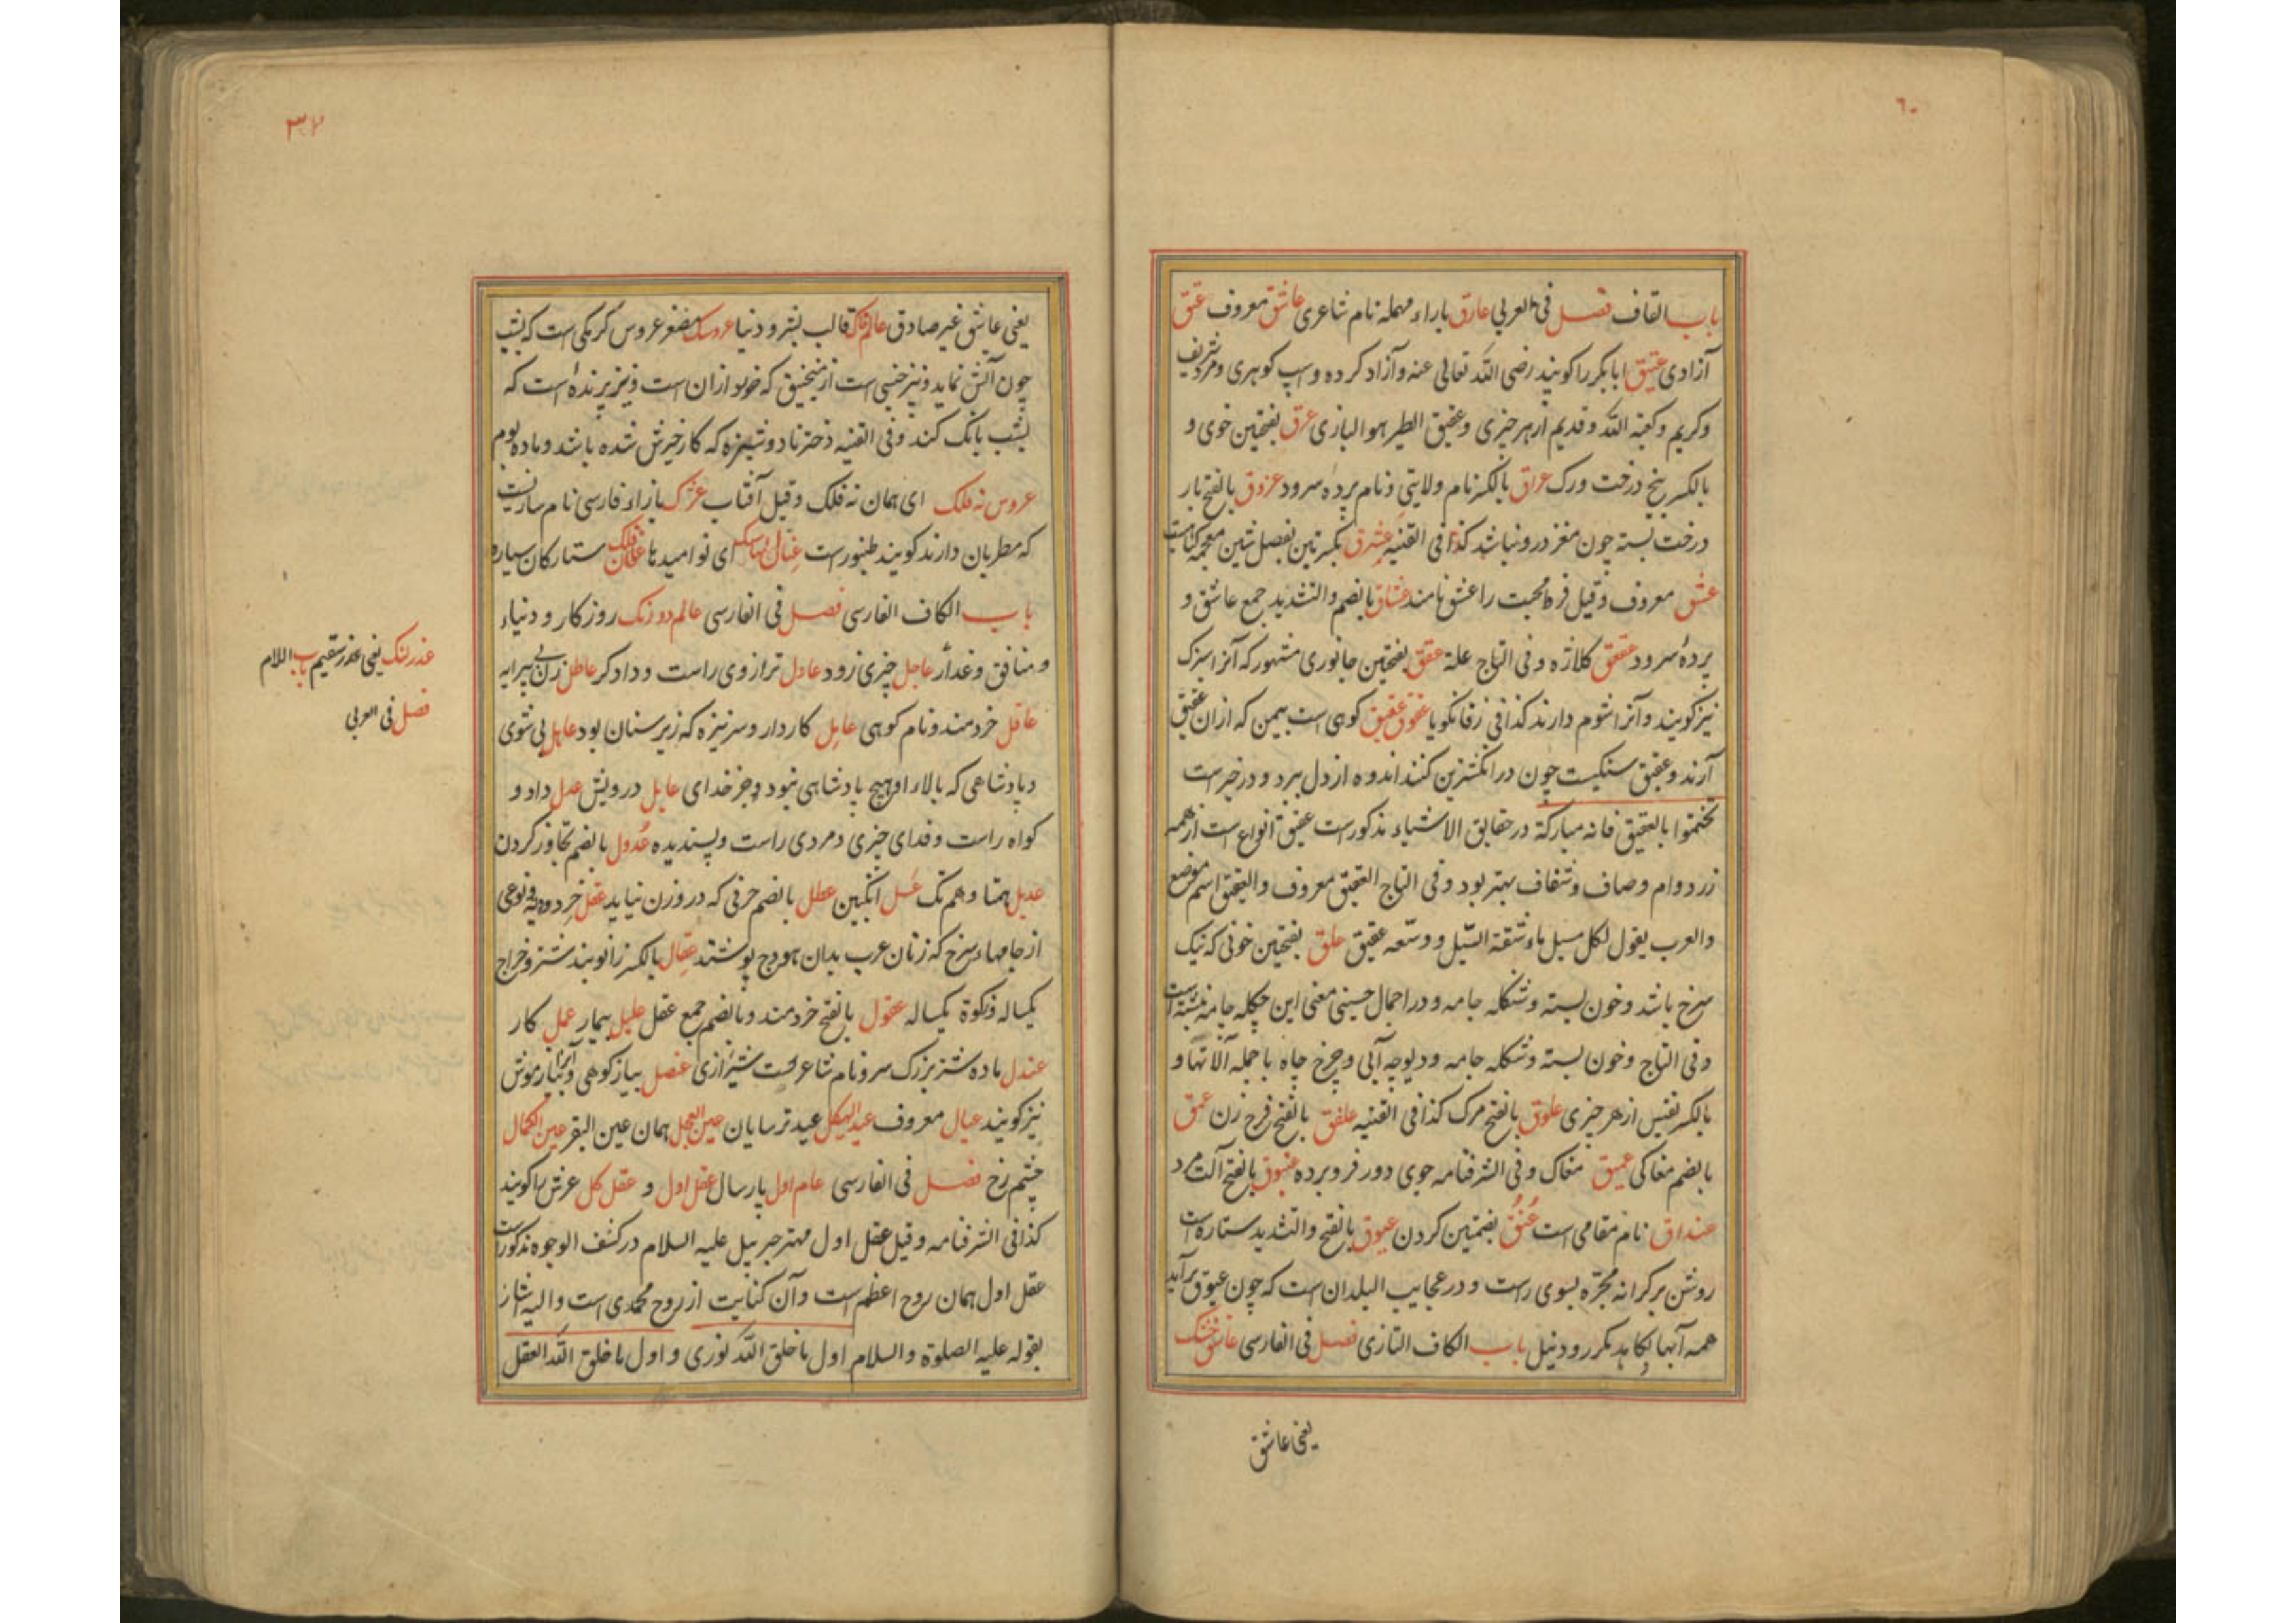 ٦٠
باب القاف فصل فی العربی عارق باراء مهمله نام شاعری عاشق معروف عتق
آزادی عتیق ابابکر را کویند رضی الله تعالی عنه و آزاد کرده و اسپ کوهری و مرد شریف
و کریم و کعبة الله و قدیم از هر چیزی و عتیق الطیر هو البازی عرق بفتحین خوی و
بالکسر بیخ درخت ورک عراق بالکسر نام ولایتی و نام پرده سرود عزوق بالفتح بار
درخت بسته چون مغز درو نباشد کذا فی القنیه عشرق بکسرتین بفصل شین معجمه
عشق معروف و قیل فرط محبت را عشق نامند عشاق بالضم والتشدید جمع عاشق و
پردهٔ سرود عقعق کلاژه و فی التاج علة عقق بفتحتین جانوری مشهور که آنرا سبزک
نیز کویند و آنرا شوم دارند کذا فی زفانکویا عقوق عقیق کوهی است بیمن که ازان عقیق
آرند و عقیق سنکیست چون در انکشترین کنند اندوه از دل ببرد و در خبرست
تختموا بالعقیق فانه مبارکة در حقایق الاشیاء مذکورست عقیق انواع است از همه
زرد وام و صاف و شفاف بهتر بود و فی التاج العقیق معروف والعقیق اسم موضع
والعرب یقول لکل مسیل ماء شقته السیل و وسّعه عقیق علق بفتحین خونی که نیک
سرخ باشد و خون بسته و شکله جامه و در اجمال حسینی معنی این چکله جامه نبشته است
و فی التاج و خون بسته و شکله جامه و دیوچه آبی و چرخ چاه با جمله آلاتها و
بالکسر نفیس از هر چیزی علوق بالفتح مرک کذا فی القنیه علفق بالفتح فرخ زن عمق
بالضم مغاکی عمیق مغاک و فی الشرفنامه جوی دور فرو برده عنبوق بالفتح آلت مرد
عنداق نام مقامی است عُنُق بضمتین کردن عیوق بالفتح والتشدید ستاره است
روشن بر کرانه مجرّه بسوی راست و در عجایب البلدان است که چون عیوق برآید
همه آبها بکاهد مکر رود نیل باب الکاف التازی فصل فی الفارسی عاشق خشک
یعنی عاشق
یعنی عاشق غیر صادق عالم خاک قالب بشر و دنیا عروسک مصغر عروس کرمکی است که بشب
چون آتش نماید و نیز جنسی است از منجنیق که خورد ازان است و نیز پرنده است که
بشب بانک کند و فی القنیه دختر نادوشیزه که کار خیرش شده باشد و ماده بوم
عروس نه فلک ای همان نه فلک و قیل آفتاب عژک بازاء فارسی نام سازیست
که مطربان دارند کویند طنبورست ای نوامیدها ستارکان سیاره
باب الکاف الفارسی فصل فی الفارسی عالم دو رنک روزکار و دنیاء
و منافق و غدار عاجل چیزی زود عادل ترازوی راست و دادکر عاطل زن بی پیرایه
عاقل خردمند و نام کوهی عامل کاردار و سر نیزه که زیر سنان بود عاهل بی شوی
و پادشاهی که بالاء او هیچ پادشاهی نبود و جز خدای عایل درویش عدل داد و
کواه راست و فدای چیزی و مردی راست و پسندیده عُدول بالضم تجاوز کردن
عدیل همتا و هم تک عسل انکبین عطل بالضم حرفی که در وزن نیاید عقل خرد و دیه و نوعی
از جامهاء سرخ که زنان عرب بدان هودج پوشند عِقال بالکسر زانوبند شتر و خراج
یکساله و زکوة یکساله عقول بالفتح خردمند و بالضم جمع عقل علیل بیمار عمل کار
عندل ماده شتر بزرک سر و نام شاعریست شیرازی عنصل پیاز کوهی و آنرا پیاز موش
نیز کویند عیال معروف عید الهیکل عید ترسایان عین العجل همان عین البقر عین الکمال
چشم زخ فصل فی الفارسی عام اول پارسال عقل اول و عقل کل عرش را کویند
کذا فی الشرفنامه و قیل عقل اول مهتر جبرییل علیه السلام در کشف الوجوه مذکورست
عقل اول همان روح اعظم است و آن کنایت از روح محمدی است و الیه اشار
بقوله علیه الصلوة والسلام اول ما خلق الله نوری و اول ما خلق الله العقل
عذر لنک یعنی عذر سقیم باب اللام
فصل فی العربی